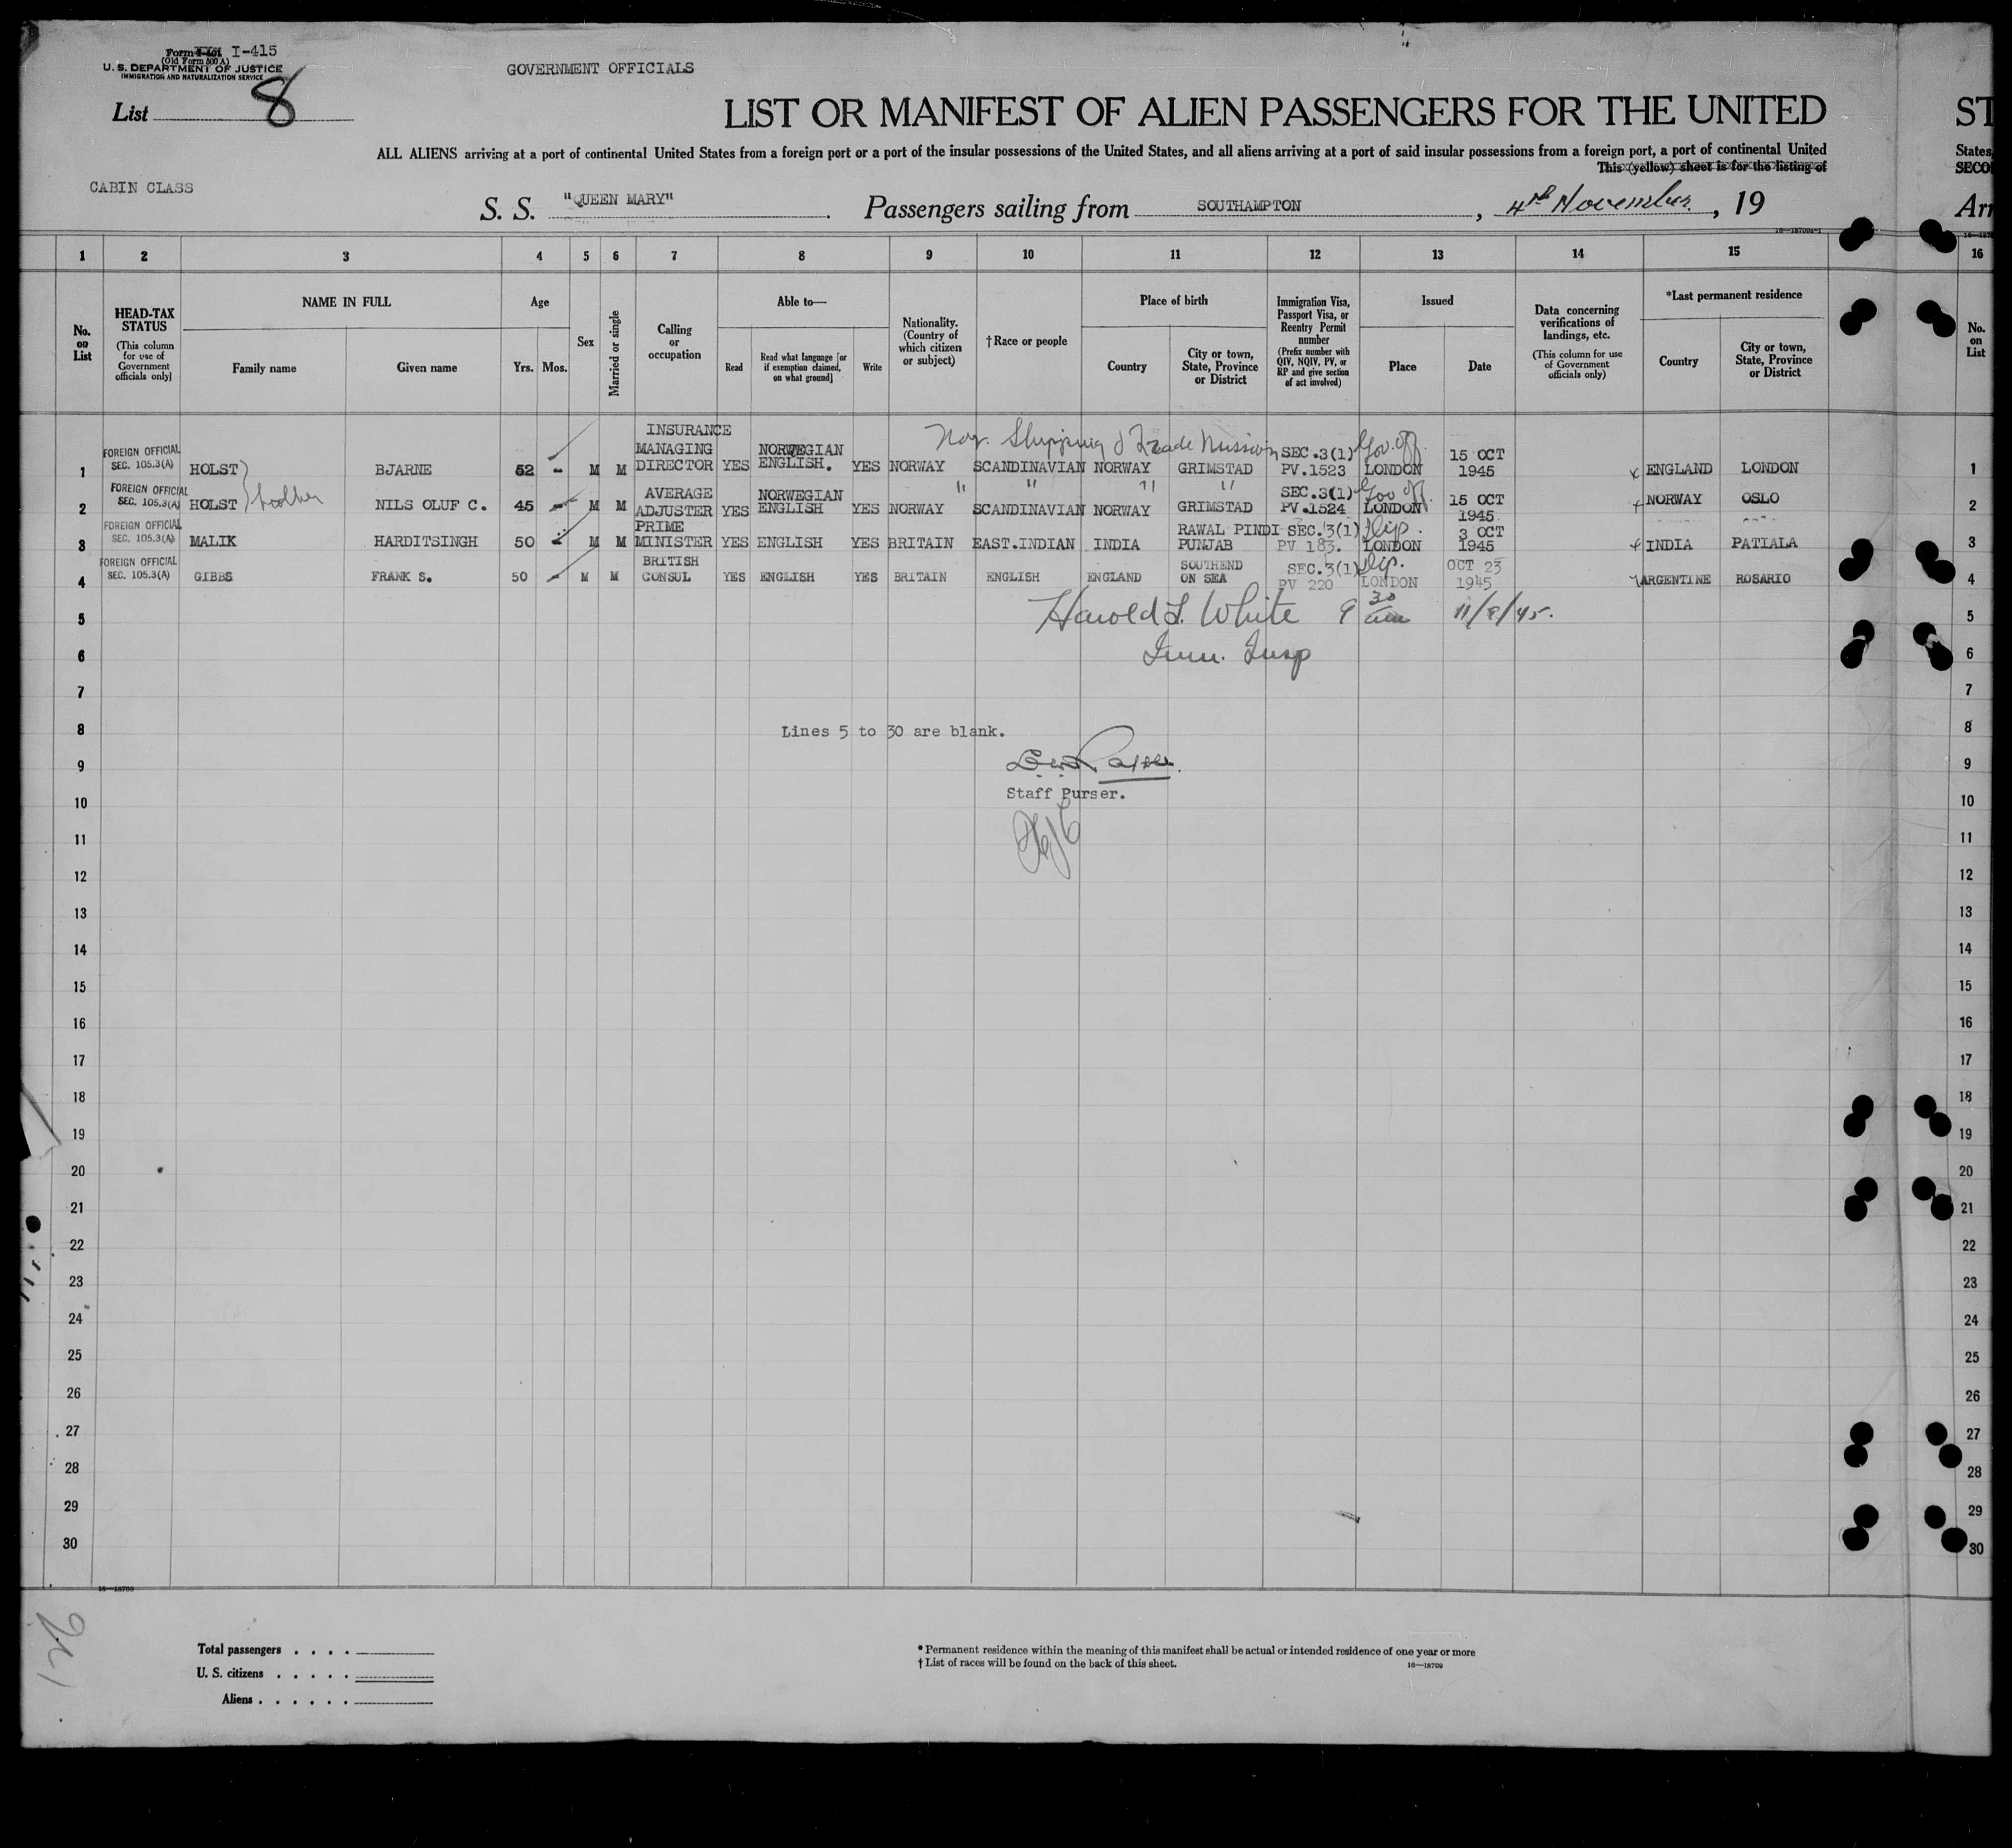 Form I-401 I-415
(Old Form 500 A)
U. S. DEPARTMENT OF JUSTICE
IMMIGRATION AND NATURALIZATION SERVICE
GOVERNMENT OFFICIALS
List 8
LIST OR MANIFEST OF ALIEN PASSENGERS FOR THE UNITED ST
ALL ALIENS arriving at a port of continental United States from a foreign port or a port of the insular possessions of the United States, and all aliens arriving at a port of said insular possessions from a foreign port, a port of continental United States,
This (yellow) sheet is for the listing of SECO
CABIN CLASS
S. S. "QUEEN MARY" Passengers sailing from SOUTHAMPTON, 4th November, 19 Arr
1 2 3 4 5 6 7 8 9 10 11 12 13 14 15 16
No. on List
HEAD-TAX STATUS (This column for use of Government officials only)
NAME IN FULL Family name Given name
Age Yrs. Mos.
Sex
Married or single
Calling or occupation
Able to— Read Read what language [or if exemption claimed, on what ground] Write
Nationality. (Country of which citizen or subject)
†Race or people
Place of birth Country City or town, State, Province or District
Immigration Visa, Passport Visa, or Reentry Permit number (Prefix number with QIV, NQIV, PV, or RP and give section of act involved)
Issued Place Date
Data concerning verifications of landings, etc. (This column for use of Government officials only)
*Last permanent residence Country City or town, State, Province or District
No. on List
Nor. Shipping & Trade Mission
1 FOREIGN OFFICIAL SEC. 105.3(A) HOLST BJARNE 52 - M M INSURANCE MANAGING DIRECTOR YES NORWEGIAN ENGLISH. YES NORWAY SCANDINAVIAN NORWAY GRIMSTAD SEC.3(1) PV.1523 Gov. off. LONDON 15 OCT 1945 x ENGLAND LONDON 1
2 FOREIGN OFFICIAL SEC. 105.3(A) HOLST brother NILS OLUF C. 45 - M M AVERAGE ADJUSTER YES NORWEGIAN ENGLISH YES NORWAY " SCANDINAVIAN " NORWAY " GRIMSTAD " SEC.3(1) PV.1524 Gov off. LONDON 15 OCT 1945 x NORWAY OSLO 2
3 FOREIGN OFFICIAL SEC. 105.3(A) MALIK HARDITSINGH 50 - M M PRIME MINISTER YES ENGLISH YES BRITAIN EAST.INDIAN INDIA RAWAL PINDI PUNJAB SEC.3(1) PV 183. Dip. LONDON 3 OCT 1945 x INDIA PATIALA 3
4 FOREIGN OFFICIAL SEC. 105.3(A) GIBBS FRANK S. 50 - M M BRITISH CONSUL YES ENGLISH YES BRITAIN ENGLISH ENGLAND SOUTHEND ON SEA SEC.3(1) PV 220 Dip. LONDON OCT 23 1945 x ARGENTINE ROSARIO 4
5 Harold L. White 9 30 am 11/9/45. 5
6 Imm. Insp 6
7 7
8 Lines 5 to 30 are blank. 8
9 9
10 Staff Purser. 10
11 11
12 12
13 13
14 14
15 15
16 16
17 17
18 18
19 19
20 20
21 21
22 22
23 23
24 24
25 25
26 26
27 27
28 28
29 29
30 30
16—18709
Total passengers . . . .
U. S. citizens . . . . .
Aliens . . . . . .
* Permanent residence within the meaning of this manifest shall be actual or intended residence of one year or more
† List of races will be found on the back of this sheet. 16—18709